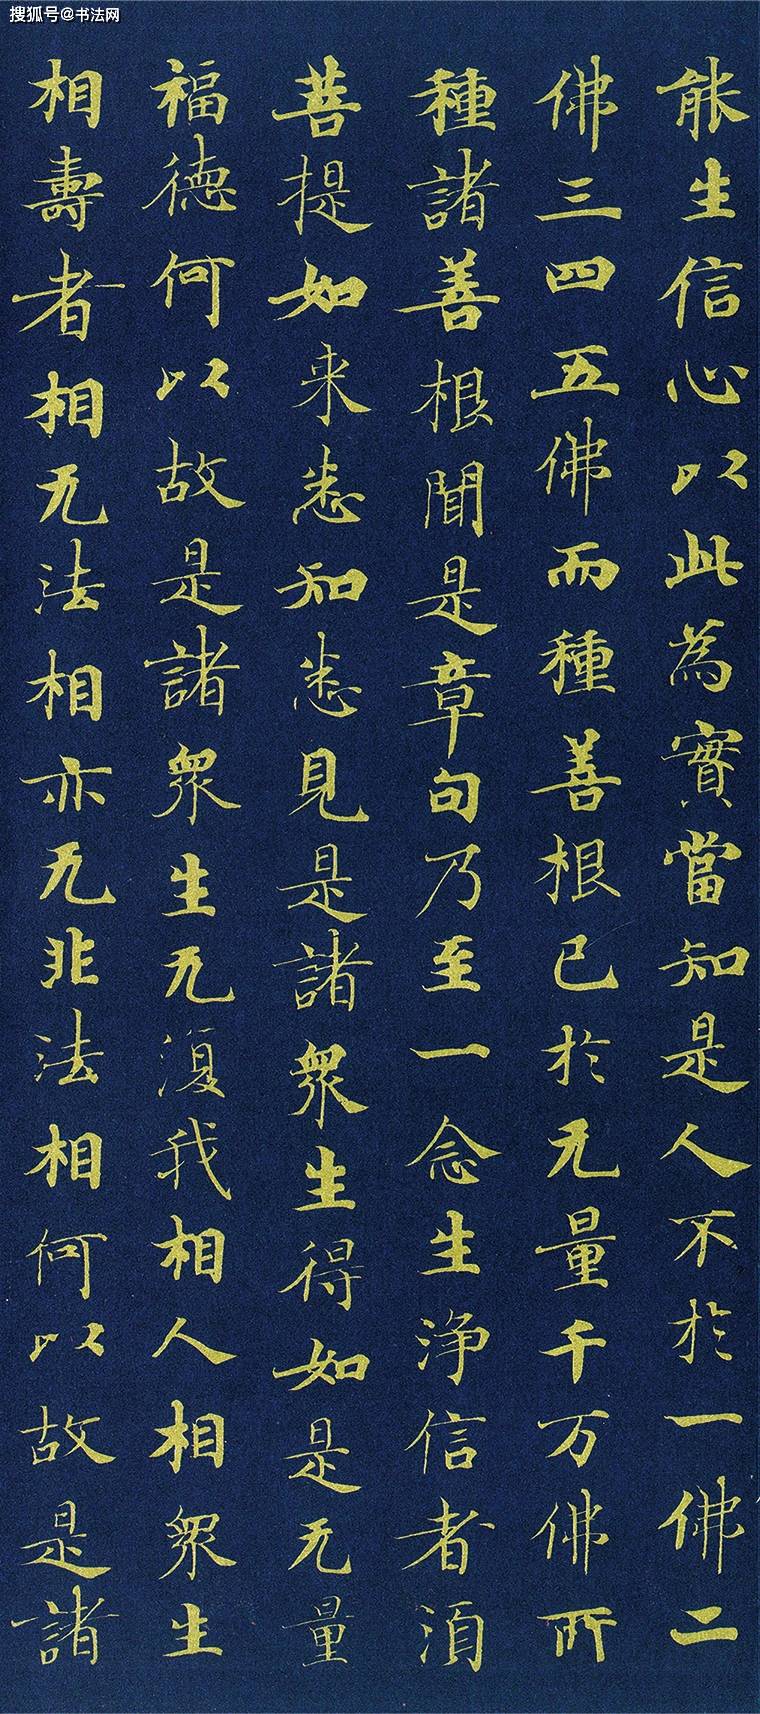 搜狐号@书法网
能生信心以此為實當知是人不於一佛二
佛三四五佛而種善根已於无量千万佛所
種諸善根聞是章句乃至一念生淨信者須
菩提如来悉知悉見是諸眾生得如是无量
福德何以故是諸眾生无復我相人相眾生
相壽者相无法相亦无非法相何以故是諸